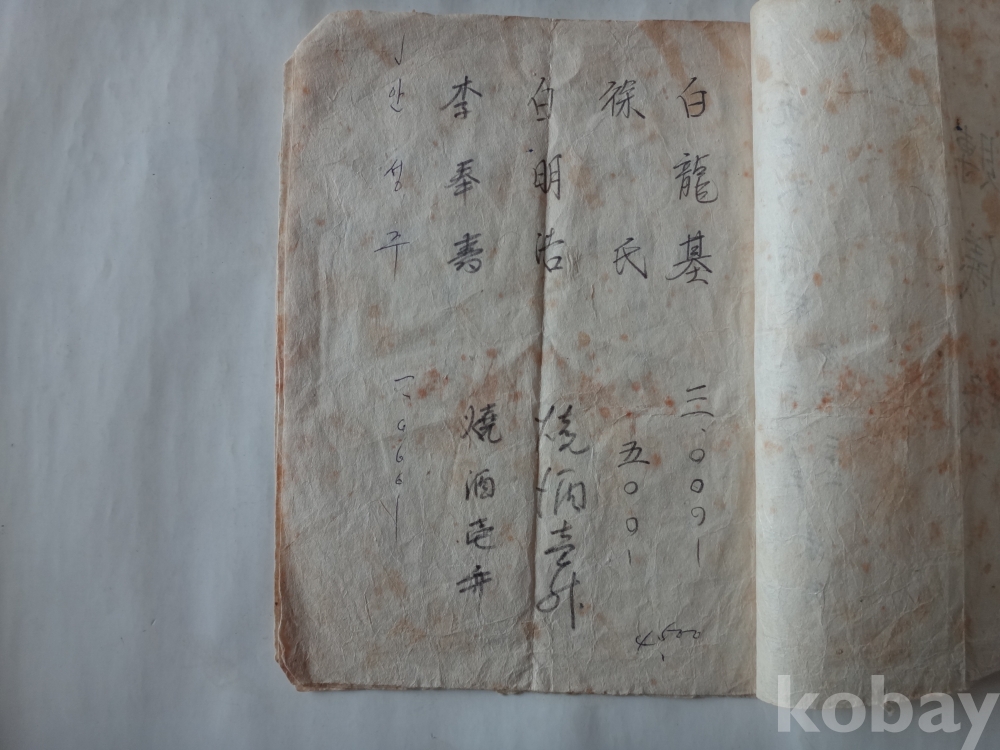 白龍基 三、〇〇〇
徐氏 五〇〇
白明浩 燒酒壹升
李奉壽 燒酒壱
안성주 一、〇〇〇
4,500
kobay